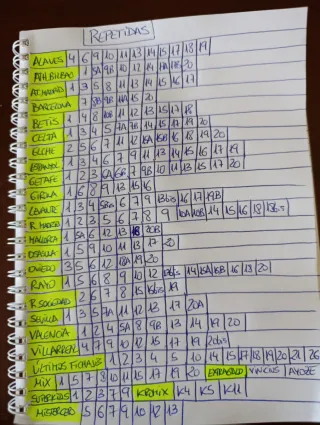 REPETIDAS
ALAVÉS 4 6 9 10 11 13 14 15 17 18 19
ATH.BILBAO 1 5A 9B 10 12 14 11A 11B 20
AT.MADRID 1 3 5 8 11 13 14 15 16 17
BARCELONA 7 15 20
BETIS 1 4 8 11 12 13 15 17 18
CELTA 1 3 4 5 7A 7B 14 15 17 19 20
ELCHE 2 5 6 7 11 12 15A 15B 16 18 19 20
ESPANYOL 1 3 4 6 7 9 11 13 14 15 16 17 19
GETAFE 1 2 3 6A 6B 7 9B 10 11 13 15 17 20
GIRONA 1 6 8 9 13 15 16
LEVANTE 1 3 4 6 7 9 13bis 16 17 19B
R.MADRID 1 2 3 5 6 7 8 9 10A 10B 14 15 16 18 18bis
MALLORCA 1 5A 6 12 13 18 20B
OSASUNA 1 5 9 10 11 12 13 17 20
OVIEDO 3 5 6 12 18A 19 20
RAYO 1 5 6 8 9 10 12 14 15A 15B 16 19 20
R.SOCIEDAD 2 6 7 8 15 15bis 19
SEVILLA 1 3 5 7A 11 12 13 17 20A
VALENCIA 1 2 4 5A 8 9B 13 14 19 20
VILLARREAL 4 7 9 10 12 15 16 17 19 20bis
ÚLTIMOS FICHAJES 1 2 3 4 5 10 14 15 17 18 19 20 21 26
MIX 1 5 7 8 10 11 15 17 19 20 VINICIUS AYOZE
SUPERKIDS 1 2 3 7 9 KROMIX K4 K5 K11
MISTER 5 6 7 9 10 12 13